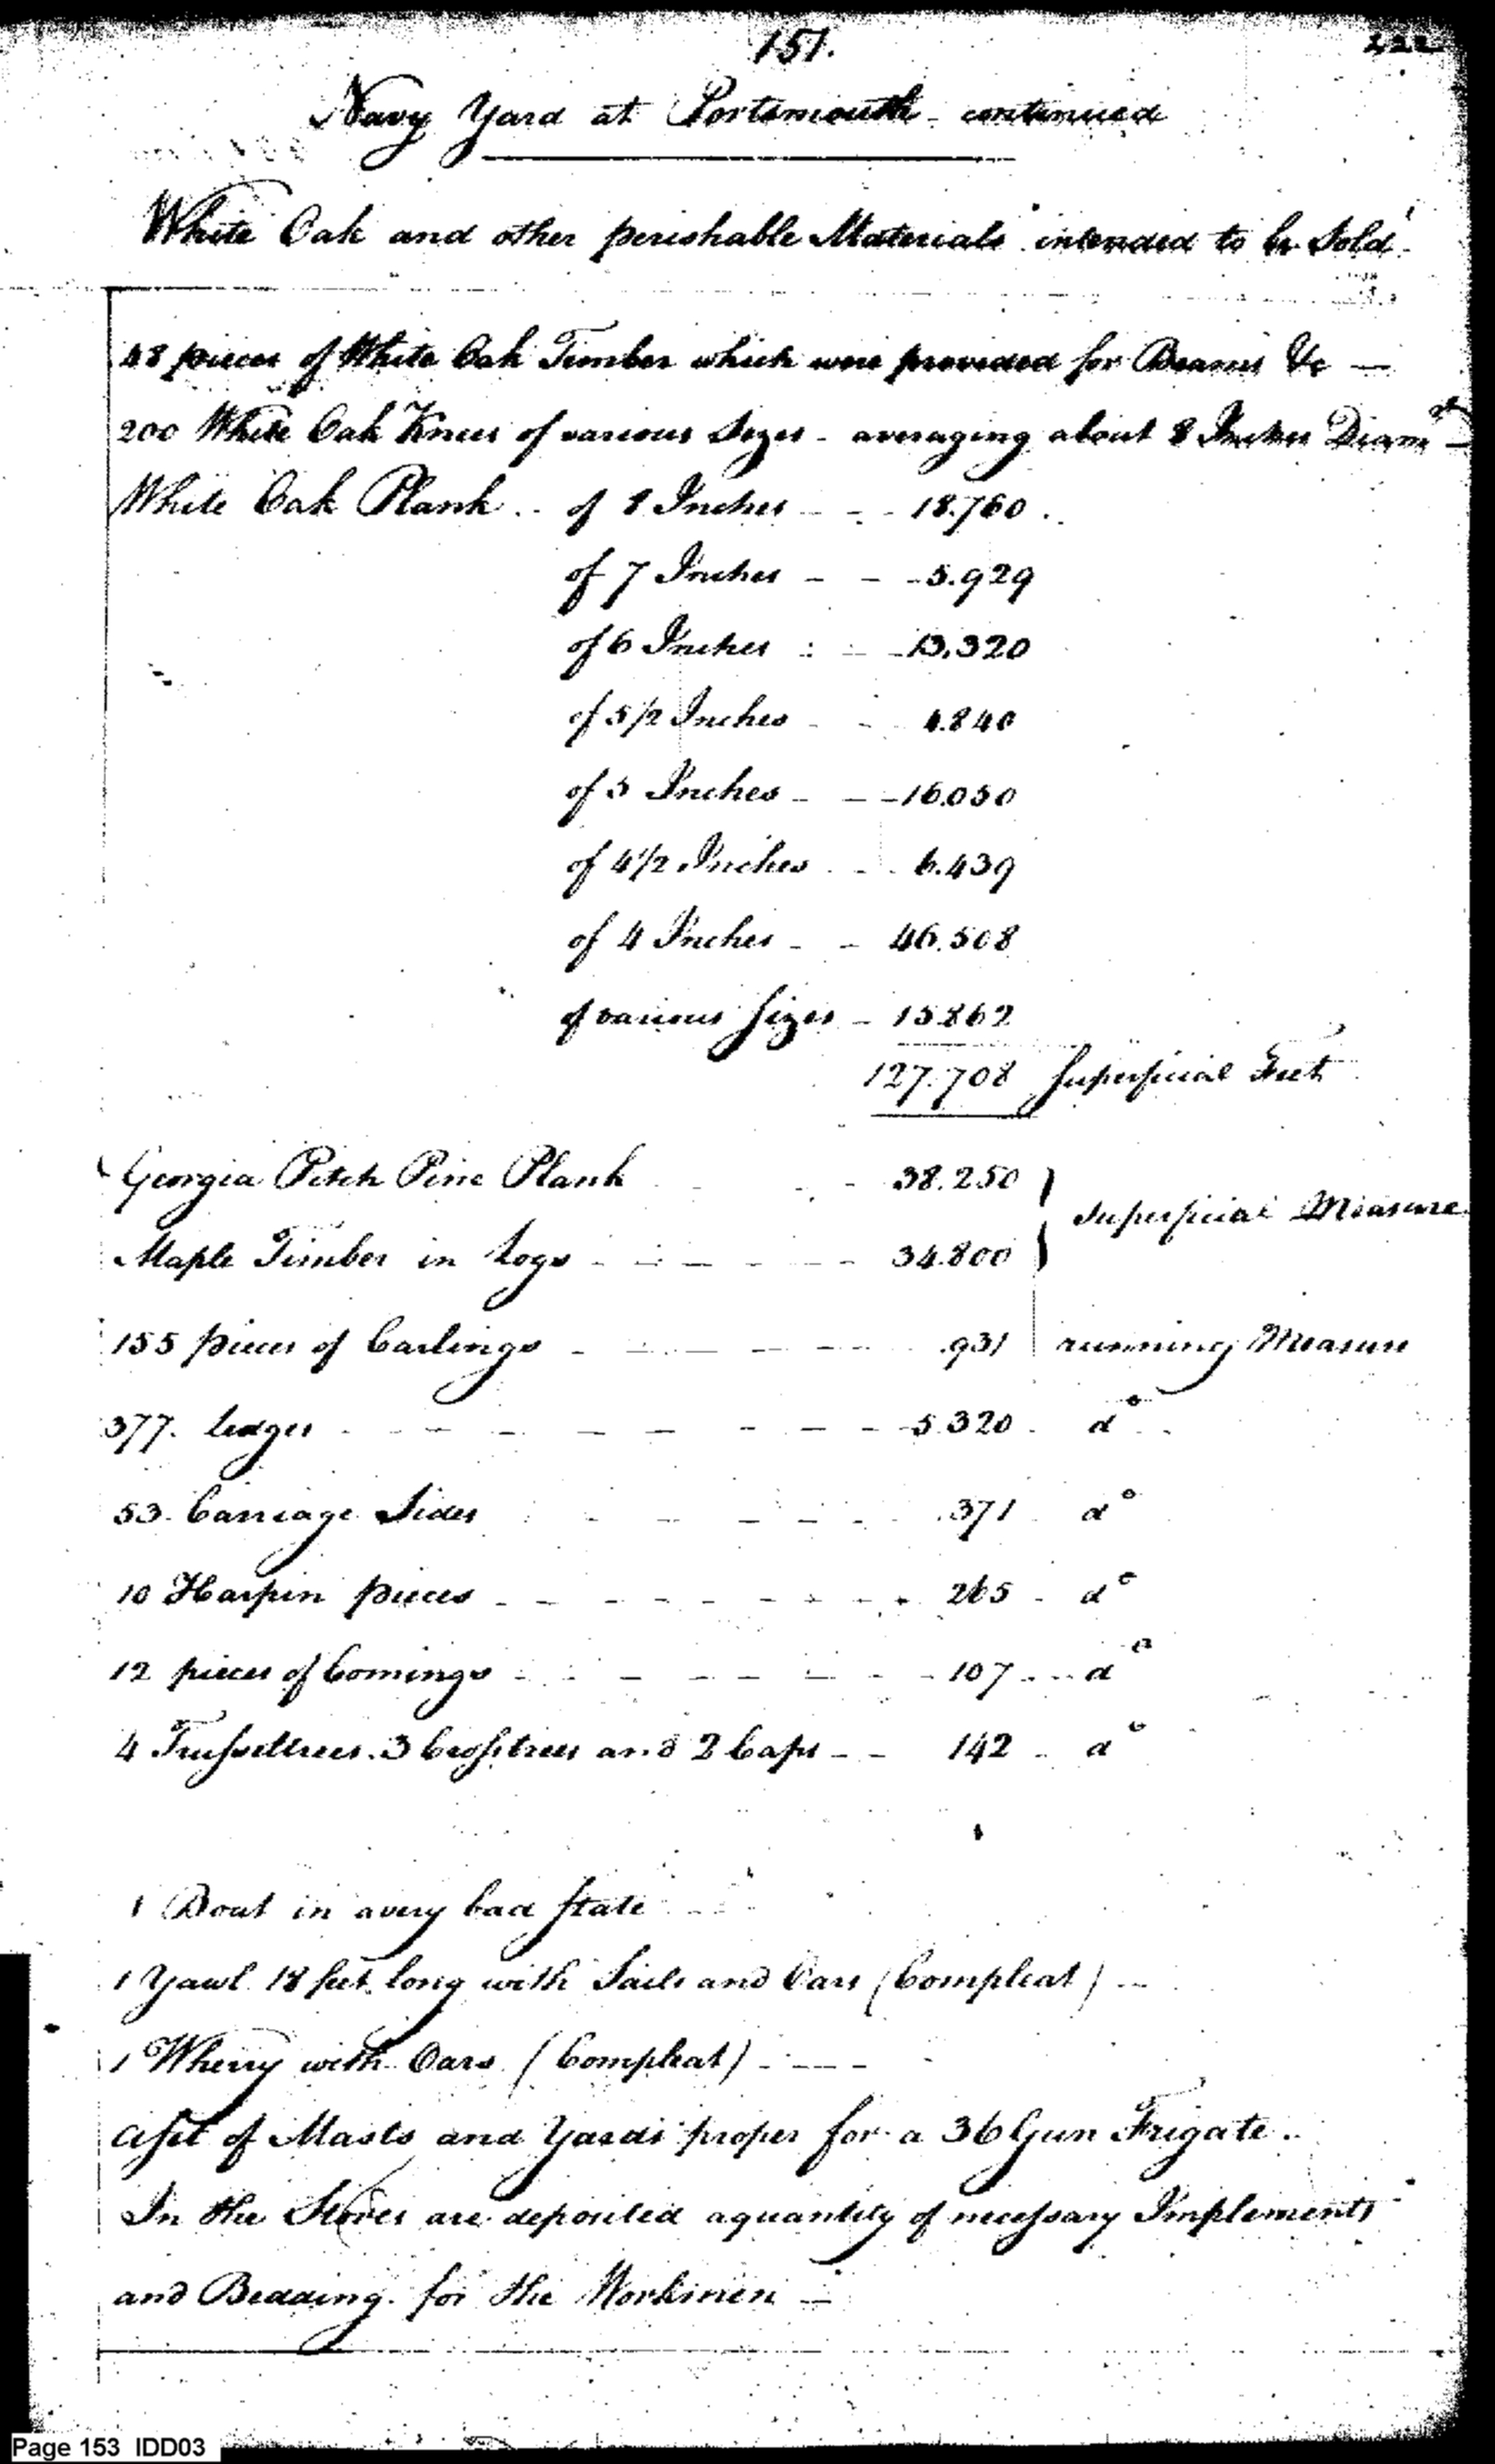 151.
Navy Yard at Portsmouth - continued
White Oak and other perishable Materials intended to be Sold.
48 pieces of White Oak Timber which were provided for Beams &c —
200 White Oak Knees of various Sizes - averaging about 8 Inches Diamr —
White Oak Plank .. of 8 Inches - - - 18.760 .
of 7 Inches - - - 5.929
of 6 Inches - - - 13.320
of 5 1/2 Inches - - 4.840
of 5 Inches - - - 16.050
of 4 1/2 Inches - - 6.439
of 4 Inches - - 46.508
of various Sizes - 15.862
127.708 Superficial Feet
Georgia Pitch Pine Plank - - 38.250 } Superficial Measure
Maple Timber in Logs - - - - - - 34.800 }
155 pieces of Carlings - - - - - - .931 running Measure
377. ledges - - - - - - - - - 5.320 . do
53. Carriage Sides - - - - - - .371 do
10 Harpin pieces - - - - - - - - 265 - do
12 pieces of Comings - - - - - - - 107 - - do
4 Trusseltrees. 3 Crosstrees and 2 Caps - - 142 - do
1 Boat in a very bad State - -
1 Yawl 18 feet long with Sails and Oars (Compleat) —
1 Wherry with Oars (Compleat) - - - -
a set of Masts and Yards proper for a 36 Gun Frigate ..
In the Stores are deposited a quantity of necessary Implements
and Bedding for the Workmen —
Page 153 IDD03